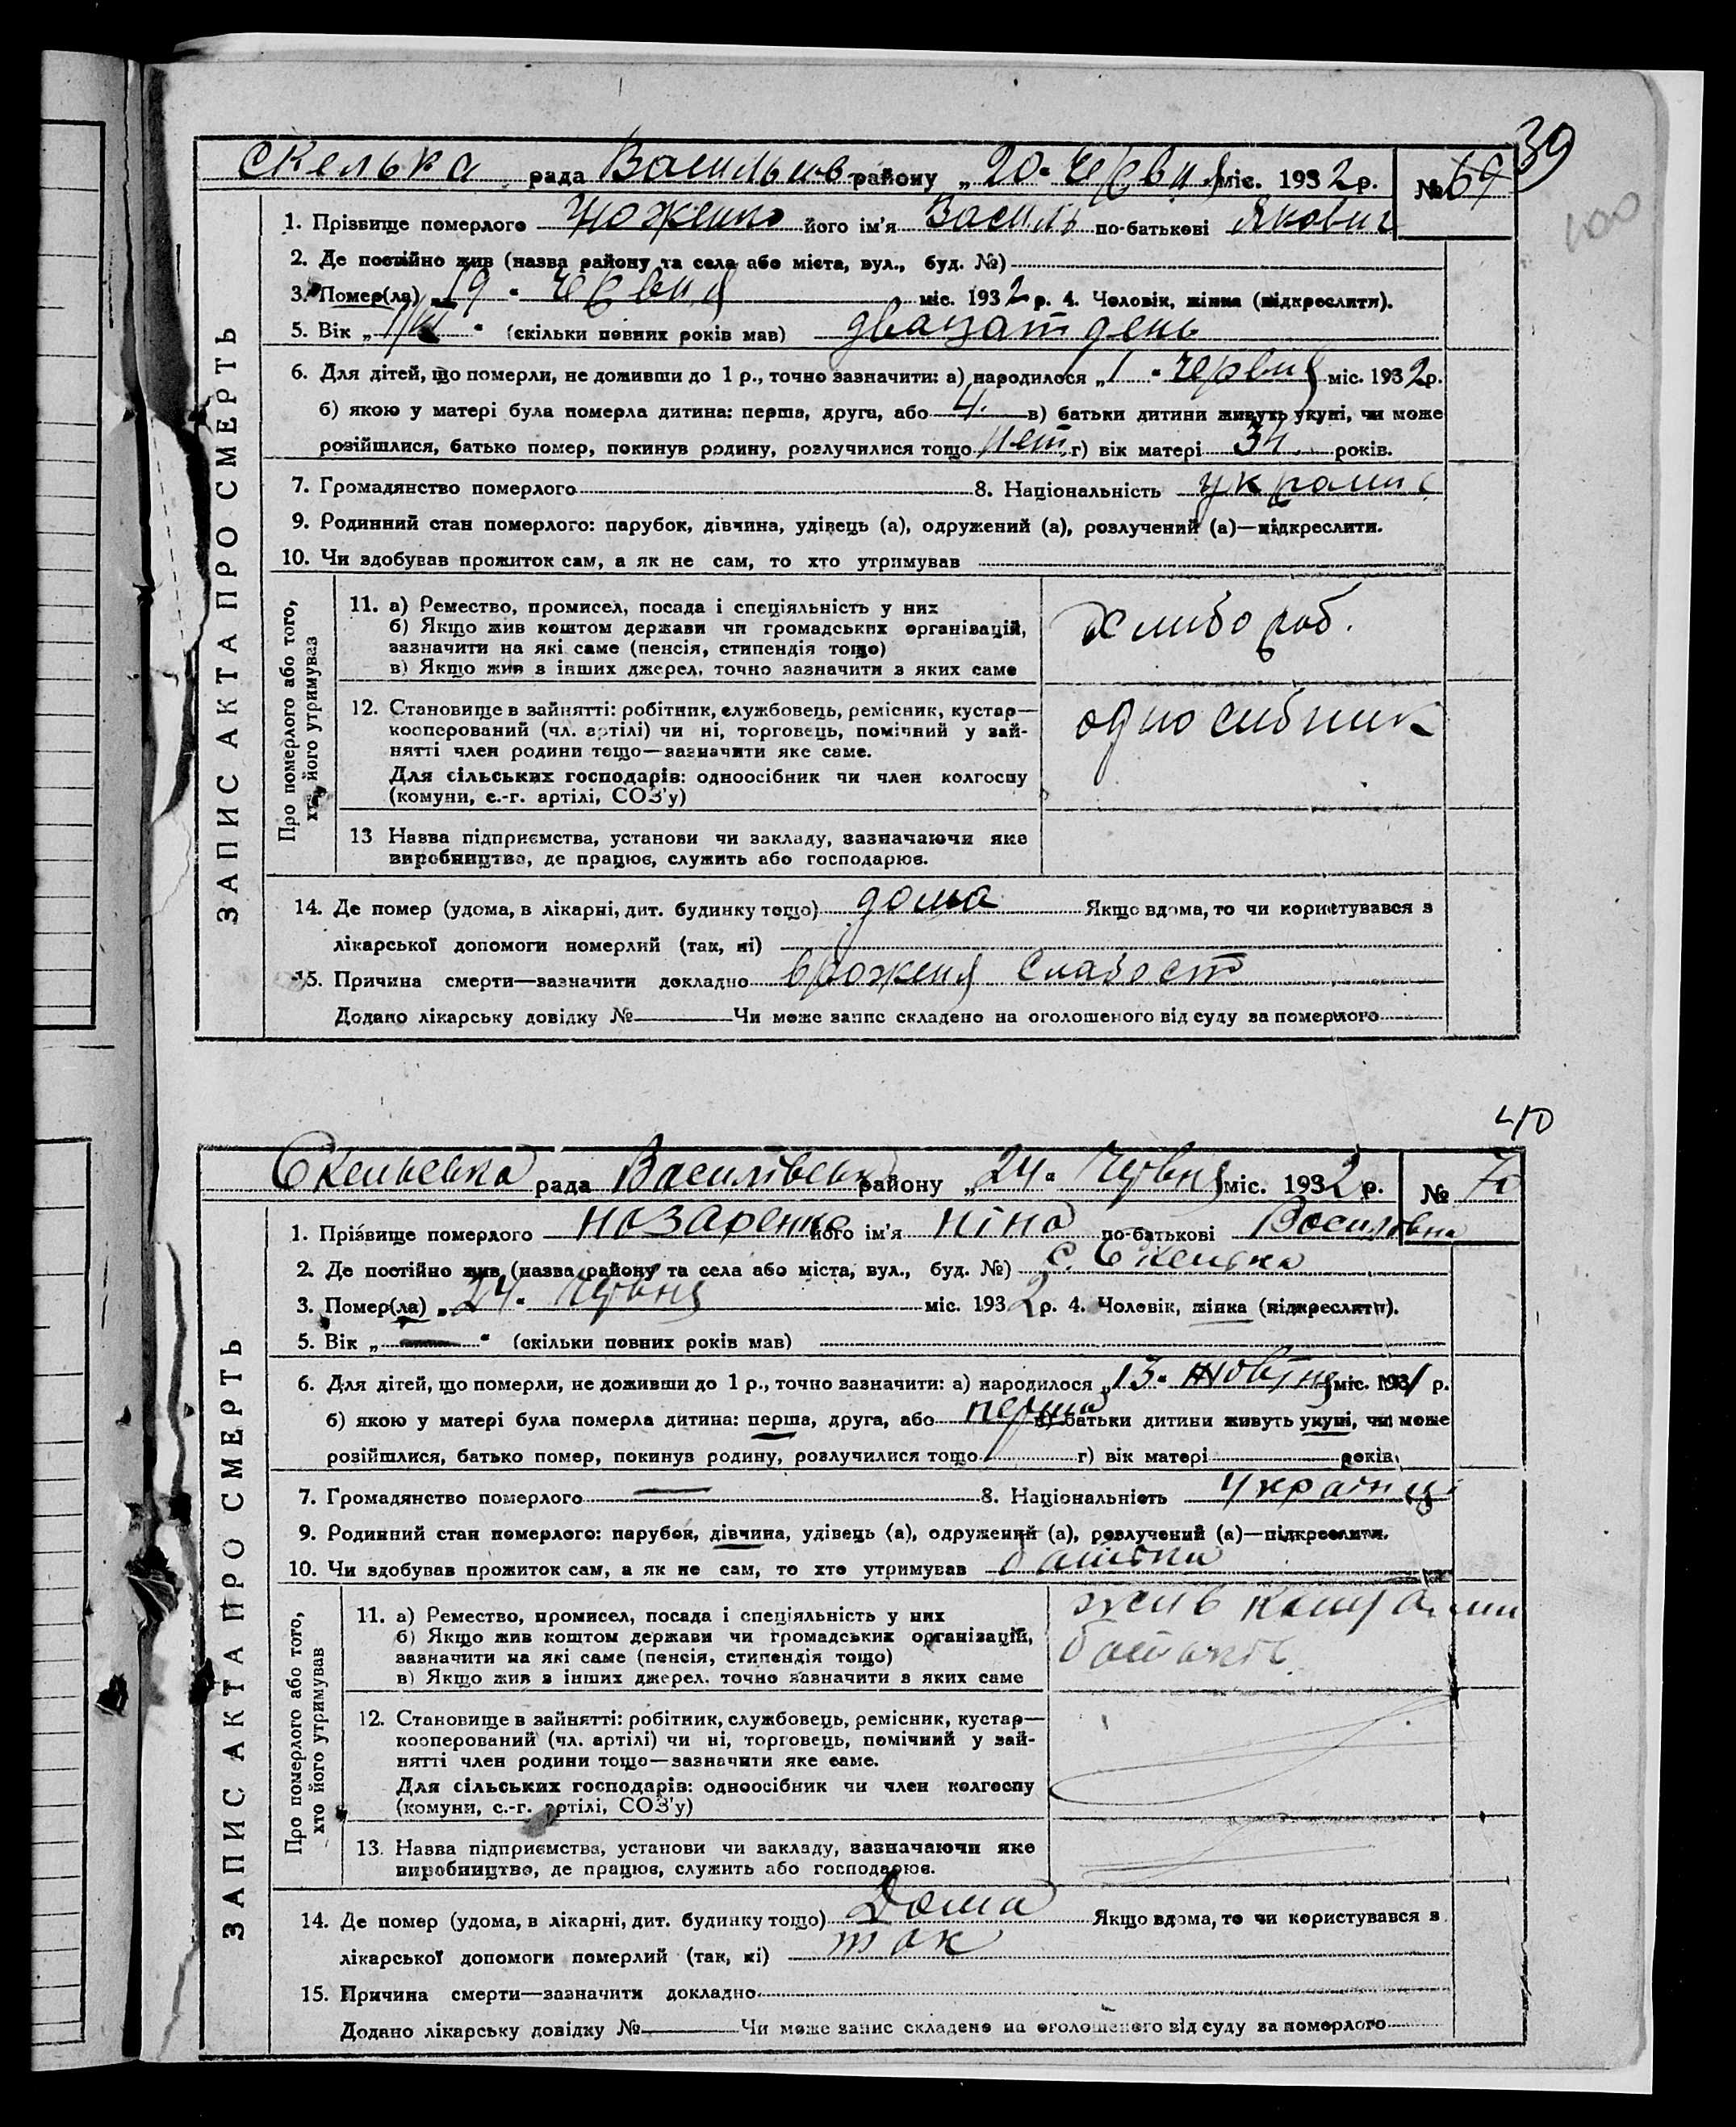 39
Скелька рада Васильов району „20" Червня міс. 1932 р. № 69
100
1. Прізвище померлого його ім'я Василь по-батькові Якович
2. Де постійно жив (назва району та села або міста, вул., буд. №)
3. Помер(ла) „19" Червня міс. 1932 р. 4. Чоловік, жінка (підкреслити).
5. Вік „ " (скільки повних років мав) двацат день
6. Для дітей, що померли, не доживши до 1 р., точно зазначити: а) народилося „1" Червня міс. 1932 р.
б) якою у матері була померла дитина: перша, друга, або 4. в) батьки дитини живуть укупі, чи може
розійшлися, батько помер, покинув родину, розлучилися тощо нет г) вік матері 34 років.
7. Громадянство померлого 8. Національність
9. Родинний стан померлого: парубок, дівчина, удівець (а), одружений (а), розлучений (а)—підкреслити.
10. Чи здобував прожиток сам, а як не сам, то хто утримував
ЗАПИС АКТА ПРО СМЕРТЬ
Про померлого або того,
хто його утримував
11. а) Ремество, промисел, посада і спеціяльність у них
б) Якщо жив коштом держави чи громадських організацій,
зазначити на які саме (пенсія, стипендія тощо)
в) Якщо жив з інших джерел, точно зазначити з яких саме
хлибороб.
12. Становище в зайнятті: робітник, службовець, ремісник, кустар—
кооперований (чл. артілі) чи ні, торговець, помічний у зай-
нятті член родини тощо—зазначити яке саме.
Для сільських господарів: одноосібник чи член колгоспу
(комуни, с.-г. артілі, СОЗ'у)
односибник
13 Назва підприємства, установи чи закладу, зазначаючи яке
виробництво, де працює, служить або господарює.
14. Де помер (удома, в лікарні, дит. будинку тощо) дома Якщо вдома, то чи користувався з
лікарської допомоги померлий (так, ні)
15. Причина смерти—зазначити докладно врожения слабост
Додано лікарську довідку № Чи може запис складено на оголошеного від суду за померлого
40
Скельська рада Василівськ району „24" Червня міс. 1932 р. № 70
1. Прізвище померлого Назаренко його ім'я Ніна по-батькові Василовна
2. Де постійно жив (назва району та села або міста, вул., буд. №) с. Скелька
3. Помер(ла) „24" Червня міс. 1932 р. 4. Чоловік, жінка (підкреслити).
5. Вік „ " (скільки повних років мав)
6. Для дітей, що померли, не доживши до 1 р., точно зазначити: а) народилося „13" жовтня міс. 1931 р.
б) якою у матері була померла дитина: перша, друга, або перша в) батьки дитини живуть укупі, чи може
розійшлися, батько помер, покинув родину, розлучилися тощо г) вік матері років.
7. Громадянство померлого — 8. Національність
9. Родинний стан померлого: парубок, дівчина, удівець (а), одружений (а), розлучений (а)—підкреслити.
10. Чи здобував прожиток сам, а як не сам, то хто утримував батьки
ЗАПИС АКТА ПРО СМЕРТЬ
Про померлого або того,
хто його утримував
11. а) Ремество, промисел, посада і спеціяльність у них
б) Якщо жив коштом держави чи громадських організацій,
зазначити на які саме (пенсія, стипендія тощо)
в) Якщо жив з інших джерел, точно зазначити з яких саме
12. Становище в зайнятті: робітник, службовець, ремісник, кустар—
кооперований (чл. артілі) чи ні, торговець, помічний у зай-
нятті член родини тощо—зазначити яке саме.
Для сільських господарів: одноосібник чи член колгоспу
(комуни, с.-г. артілі, СОЗ'у)
13. Назва підприємства, установи чи закладу, зазначаючи яке
виробництво, де працює, служить або господарює.
14. Де помер (удома, в лікарні, дит. будинку тощо) Дома Якщо вдома, то чи користувався з
лікарської допомоги померлий (так, ні) так
15. Причина смерти—зазначити докладно
Додано лікарську довідку № Чи може запис складено на оголошеного від суду за померлого